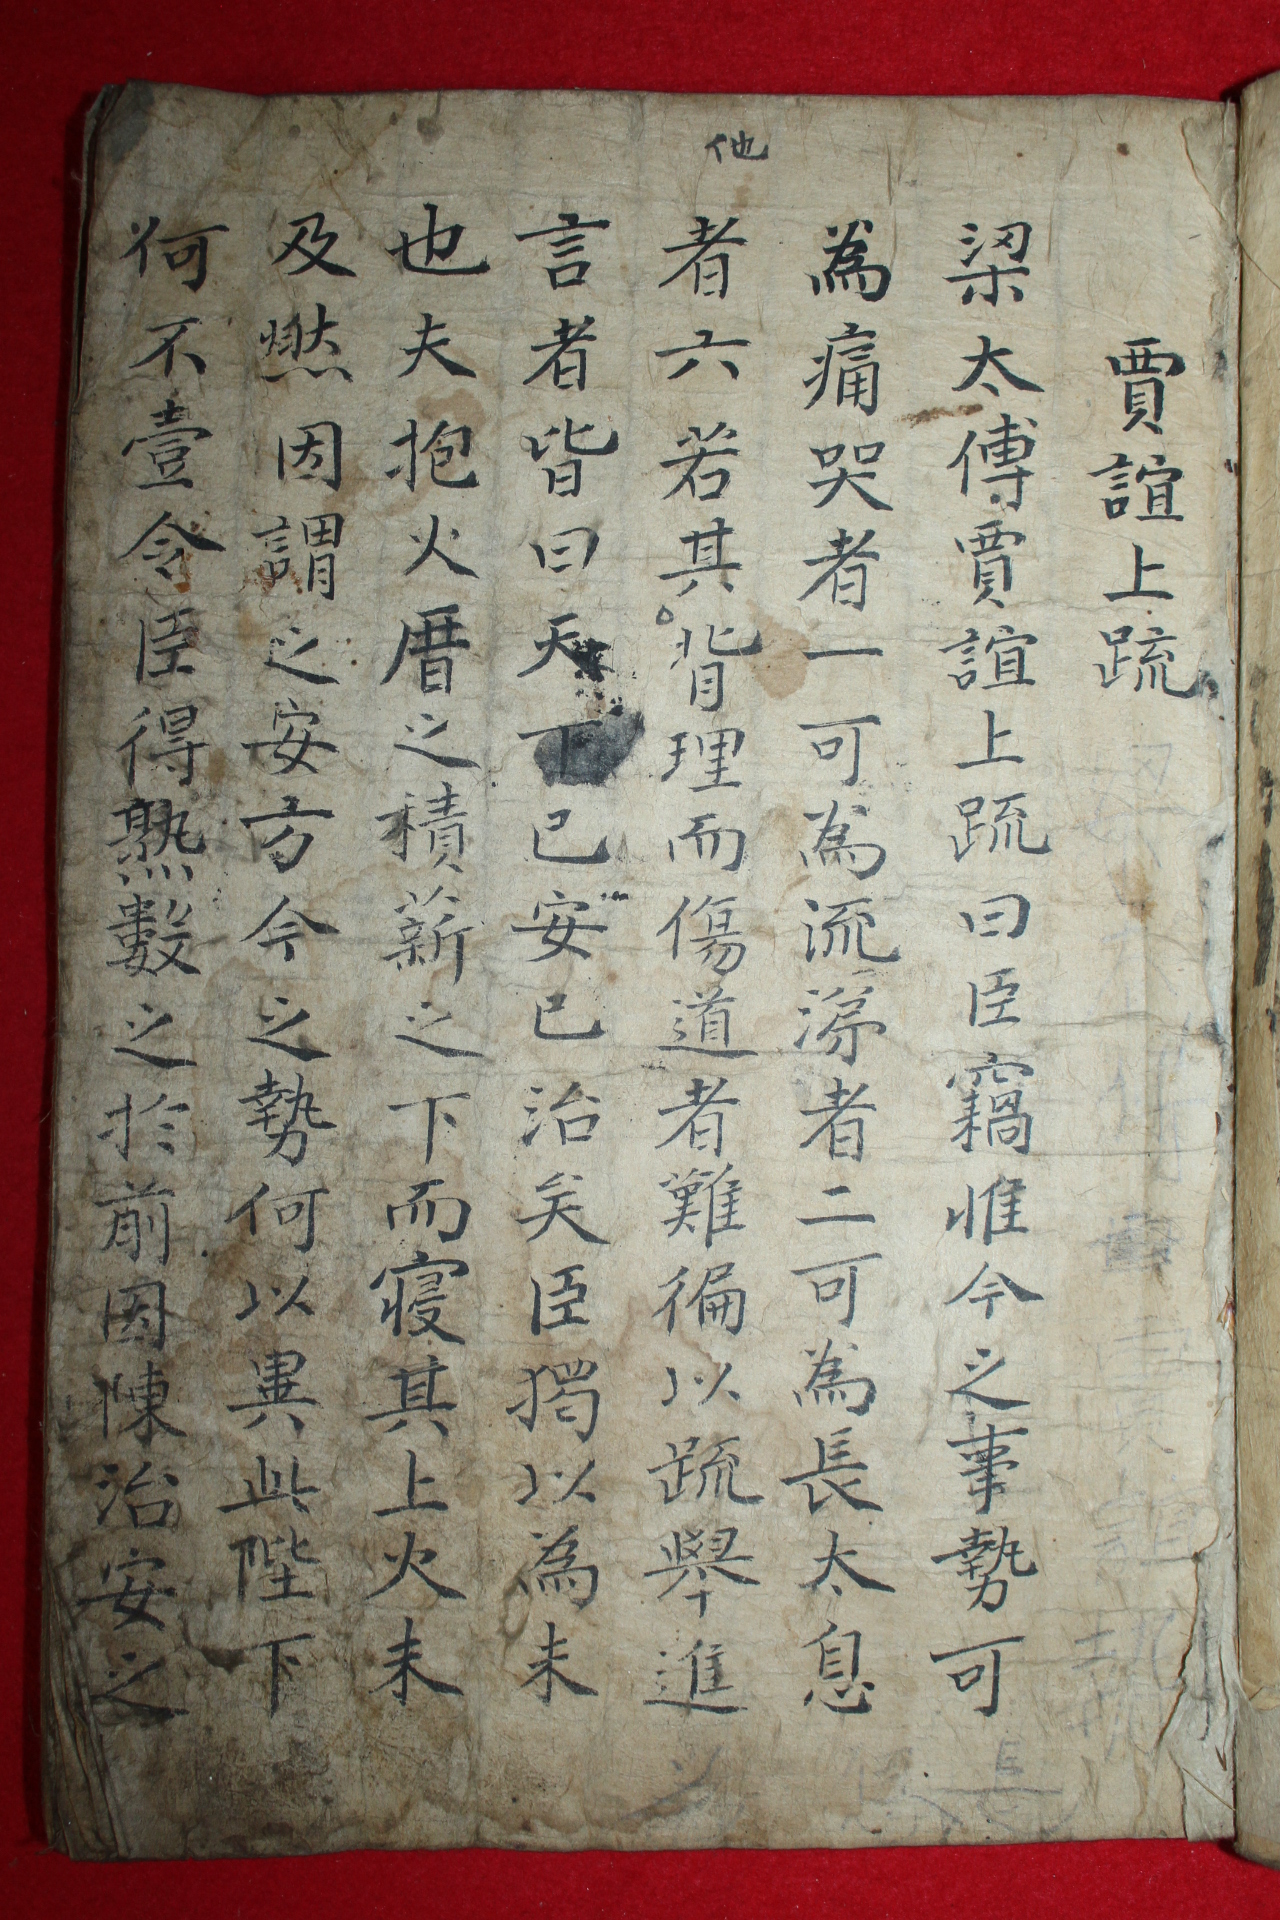 賈誼上疏
梁太傅賈誼上疏曰臣竊惟今之事勢可
為痛哭者一可為流涕者二可為長太息
他
者六若其背理而傷道者難徧以疏擧進
言者皆曰天下已安已治矣臣獨以為未
也夫抱火厝之積薪之下而寢其上火未
及燃因謂之安方今之勢何以異此陛下
何不壹令臣得熟數之於前因陳治安之